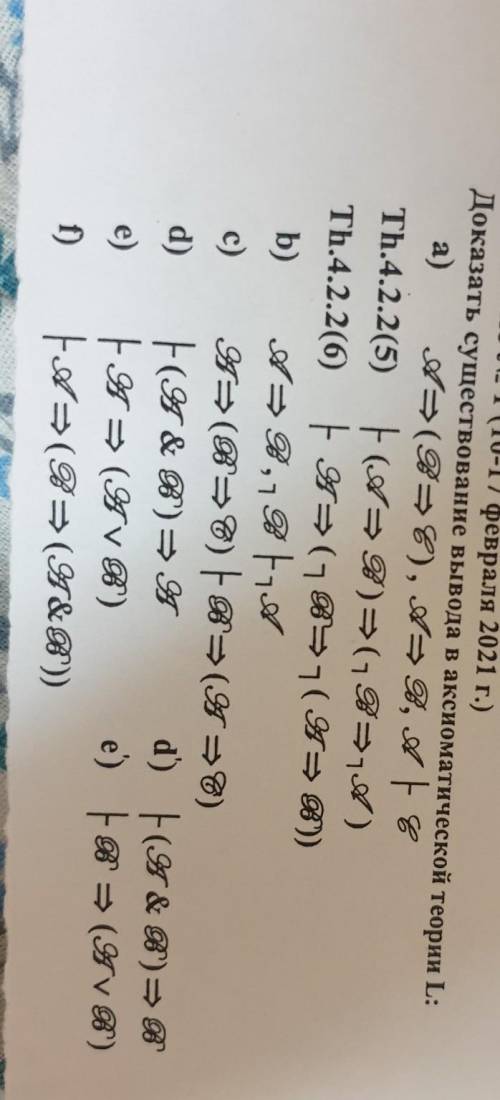 февраля 2021 г.)
Доказать существование вывода в аксиоматической теории L:
a) 𝒜 ⇒ (ℬ ⇒ 𝒞), 𝒜 ⇒ ℬ, 𝒜 ├ 𝒞
Th.4.2.2(5) ├ (𝒜 ⇒ ℬ) ⇒ (┐ℬ ⇒ ┐𝒜)
Th.4.2.2(6) ├ 𝒜 ⇒ (┐ℬ ⇒ ┐(𝒜 ⇒ ℬ))
b) 𝒜 ⇒ ℬ, ┐ℬ ├ ┐𝒜
c) 𝒜 ⇒ (ℬ ⇒ 𝒞) ├ ℬ ⇒ (𝒜 ⇒ 𝒞)
d) ├ (𝒜 & ℬ) ⇒ 𝒜 d') ├ (𝒜 & ℬ) ⇒ ℬ
e) ├ 𝒜 ⇒ (𝒜 ∨ ℬ) e') ├ ℬ ⇒ (𝒜 ∨ ℬ)
f) ├ 𝒜 ⇒ (ℬ ⇒ (𝒜 & ℬ))